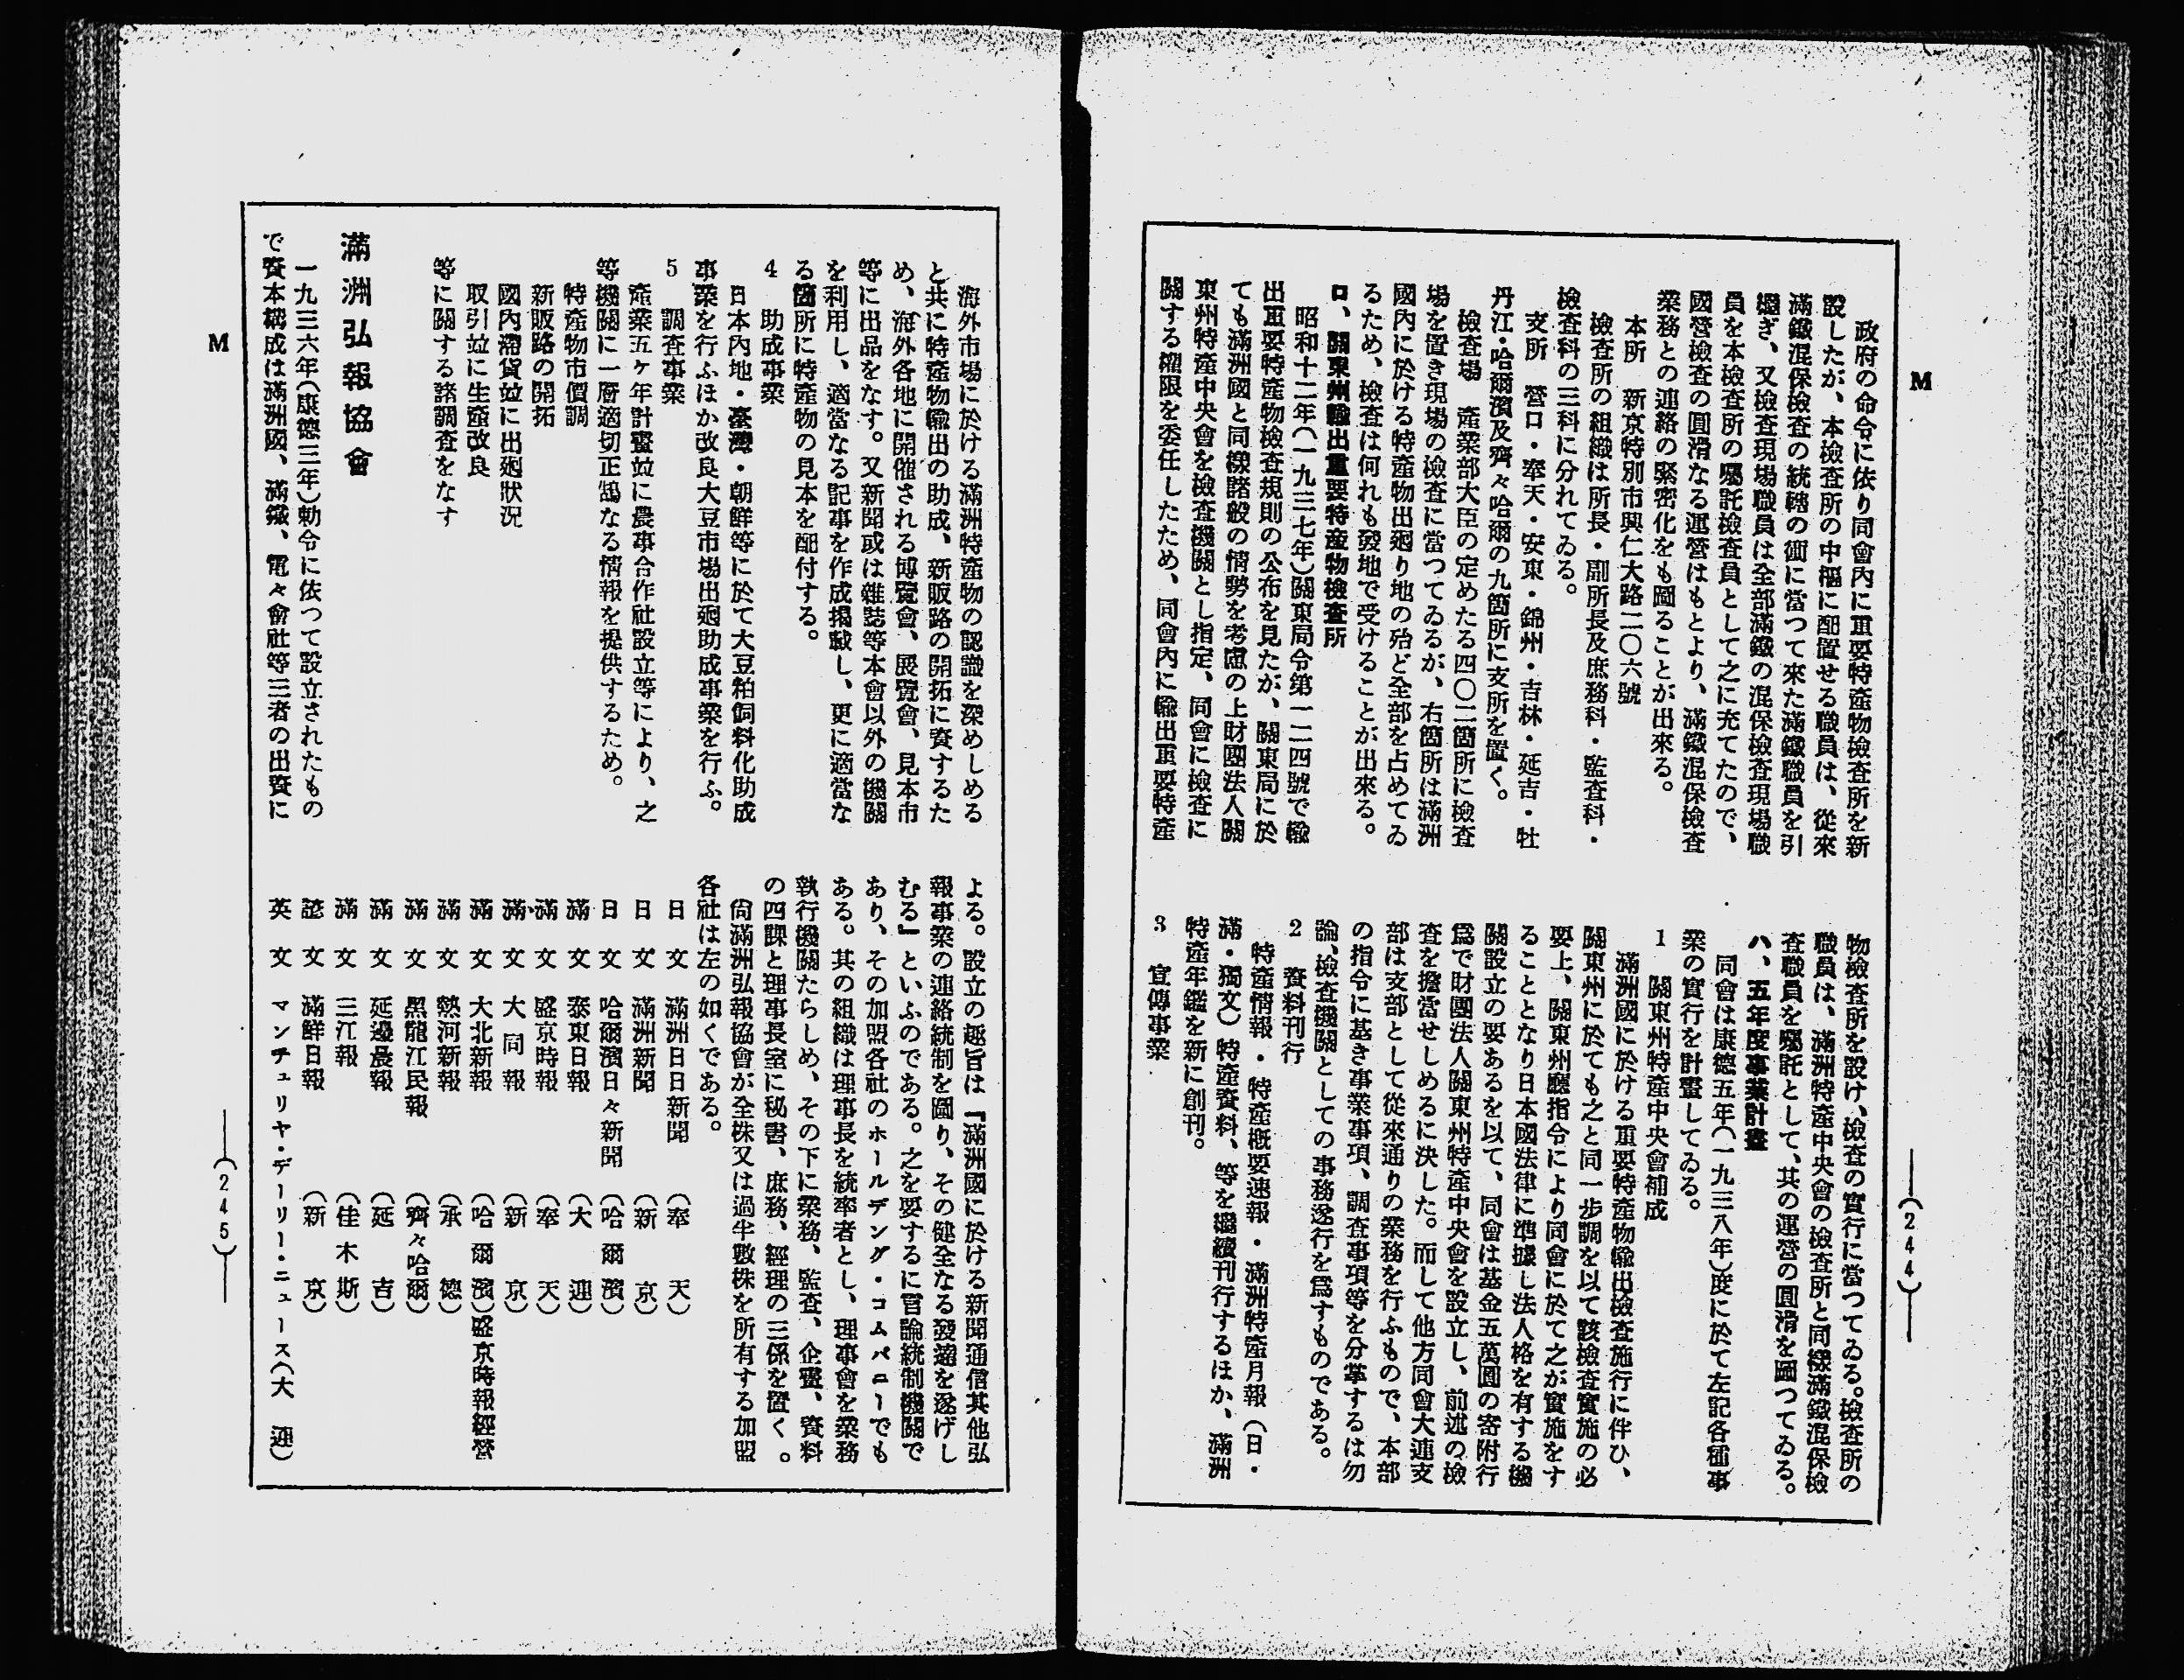 M
政府の命令に依り同會内に重要特產物檢査所を新
設したが、本檢査所の中樞に配置せる職員は、從來
滿鐵混保檢査の統轄の衝に當つて來た滿鐵職員を引
繼ぎ、又檢査現場職員は全部滿鐵の混保檢査現場職
員を本檢査所の囑託檢査員として之に充てたので、
國營檢査の圓滑なる運營はもとより、滿鐵混保檢査
業務との連絡の緊密化をも圖ることが出來る。
本所　新京特別市興仁大路二〇六號
檢査所の組織は所長・副所長及庶務科・監査科・
檢査科の三科に分れてゐる。
支所　營口・奉天・安東・錦州・吉林・延吉・牡
丹江・哈爾濱及齊々哈爾の九箇所に支所を置く。
檢査場　產業部大臣の定めたる四〇二箇所に檢査
場を置き現場の檢査に當つてゐるが、右箇所は滿洲
國内に於ける特產物出廻り地の殆ど全部を占めてゐ
るため、檢査は何れも發地で受けることが出來る。
ロ、關東州輸出重要特產物檢査所
昭和十二年(一九三七年)關東局令第一二四號で輸
出重要特產物檢査規則の公布を見たが、關東局に於
ても滿洲國と同樣諸般の情勢を考慮の上財團法人關
東州特產中央會を檢査機關とし指定、同會に檢査に
關する權限を委任したため、同會内に輸出重要特產
物檢査所を設け、檢査の實行に當つてゐる。檢査所の
職員は、滿洲特產中央會の檢査所と同樣滿鐵混保檢
査職員を囑託として、其の運營の圓滑を圖つてゐる。
ハ、五年度事業計畫
同會は康德五年(一九三八年)度に於て左記各種事
業の實行を計畫してゐる。
1　關東州特產中央會補成
滿洲國に於ける重要特產物輸出檢査施行に伴ひ、
關東州に於ても之と同一步調を以て該檢査實施の必
要上、關東州廳指令により同會に於て之が實施をす
ることとなり日本國法律に準據し法人格を有する機
關設立の要あるを以て、同會は基金五萬圓の寄附行
爲で財團法人關東州特產中央會を設立し、前述の檢
査を擔當せしめるに決した。而して他方同會大連支
部は支部として從來通りの業務を行ふもので、本部
の指令に基き事業事項、調査事項等を分掌するは勿
論、檢査機關としての事務遂行を爲すものである。
2　資料刊行
特產情報・特產槪要速報・滿洲特產月報(日・
滿・獨文)特產資料、等を繼續刊行するほか、滿洲
特產年鑑を新に創刊。
3　宣傳事業
(244)
海外市場に於ける滿洲特產物の認識を深めしめる
と共に特產物輸出の助成、新販路の開拓に資するた
め、海外各地に開催される博覽會、展覽會、見本市
等に出品をなす。又新聞或は雜誌等本會以外の機關
を利用し、適當なる記事を作成揭載し、更に適當な
る箇所に特產物の見本を配付する。
4　助成事業
日本内地・臺灣・朝鮮等に於て大豆粕飼料化助成
事業を行ふほか改良大豆市場出廻助成事業を行ふ。
5　調査事業
產業五ヶ年計畫竝に農事合作社設立等により、之
等機關に一層適切正鵠なる情報を提供するため。
特產物市價調
新販路の開拓
國内滯貨竝に出廻狀況
取引竝に生產改良
等に關する諸調査をなす
滿洲弘報協會
一九三六年(康德三年)勅令に依つて設立されたもの
で資本構成は滿洲國、滿鐵、電々會社等三者の出資に
よる。設立の趣旨は『滿洲國に於ける新聞通信其他弘
報事業の連絡統制を圖り、その健全なる發達を遂げし
むる』といふのである。之を要するに言論統制機關で
あり、その加盟各社のホールデング・コムパニーでも
ある。其の組織は理事長を統率者とし、理事會を業務
執行機關たらしめ、その下に業務、監査、企畫、資料
の四課と理事長室に秘書、庶務、經理の三係を置く。
尙滿洲弘報協會が全株又は過半數株を所有する加盟
各社は左の如くである。
日文　滿洲日日新聞　(奉天)
日文　滿洲新聞　(新京)
日文　哈爾濱日々新聞　(哈爾濱)
滿文　泰東日報　(大連)
滿文　盛京時報　(奉天)
滿文　大同報　(新京)
滿文　大北新報　(哈爾濱)盛京時報經營
滿文　熱河新報　(承德)
滿文　黑龍江民報　(齊々哈爾)
滿文　延邊晨報　(延吉)
滿文　三江報　(佳木斯)
諺文　滿鮮日報　(新京)
英文　マンチュリヤ・デーリー・ニュース(大連)
M
(245)